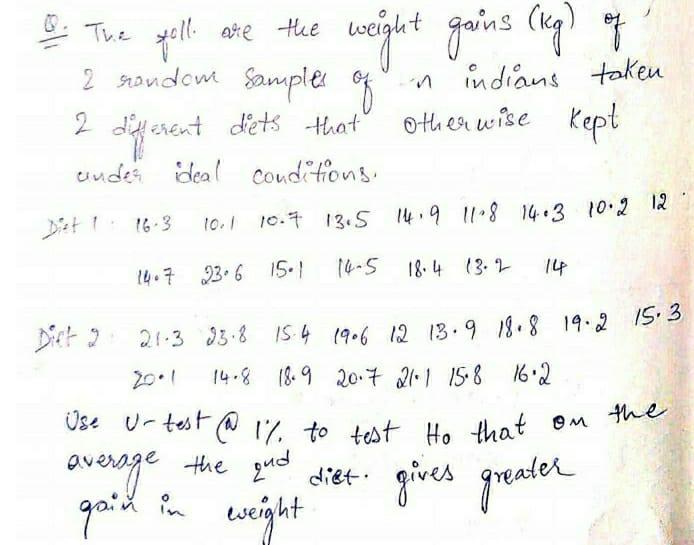 Q. The foll. are the weight gains (kg) of
2 random samples of n indians taken
2 different diets that otherwise kept
under ideal conditions.
Diet 1: 16.3 10.1 10.7 13.5 14.9 11.8 14.3 10.2 12
14.7 23.6 15.1 14.5 18.4 13.2 14
Diet 2: 21.3 23.8 15.4 19.6 12 13.9 18.8 19.2 15.3
20.1 14.8 18.9 20.7 21.1 15.8 16.2
Use U-test @ 1% to test Ho that on the
average the 2nd diet. gives greater
gain in weight